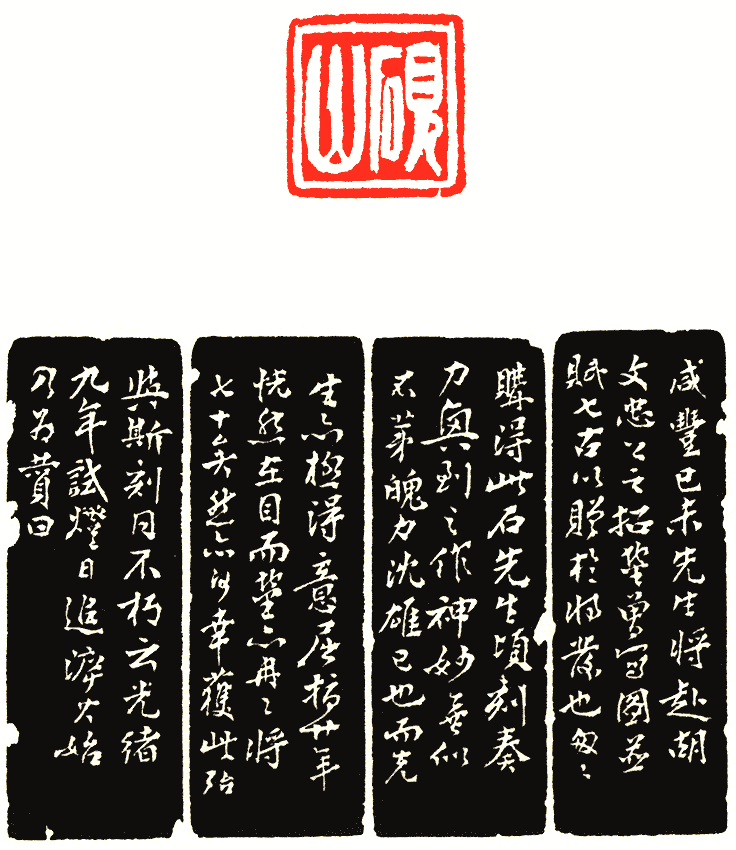 硯山
咸豐己未先生將赴胡
文忠公之招鋆曾寫圖並
賦七古以贈於將發也匆〻
購得此石先生頃刻奏
刀興到之作神妙無似
不第魄力沈雄已也而先
生亦極得意屈指廿年
恍然在目而鋆亦冉〻將
七十矣然亦何幸獲此殆
與斯刻同不朽云光緒
九年試燈日追 始
乃為贊曰